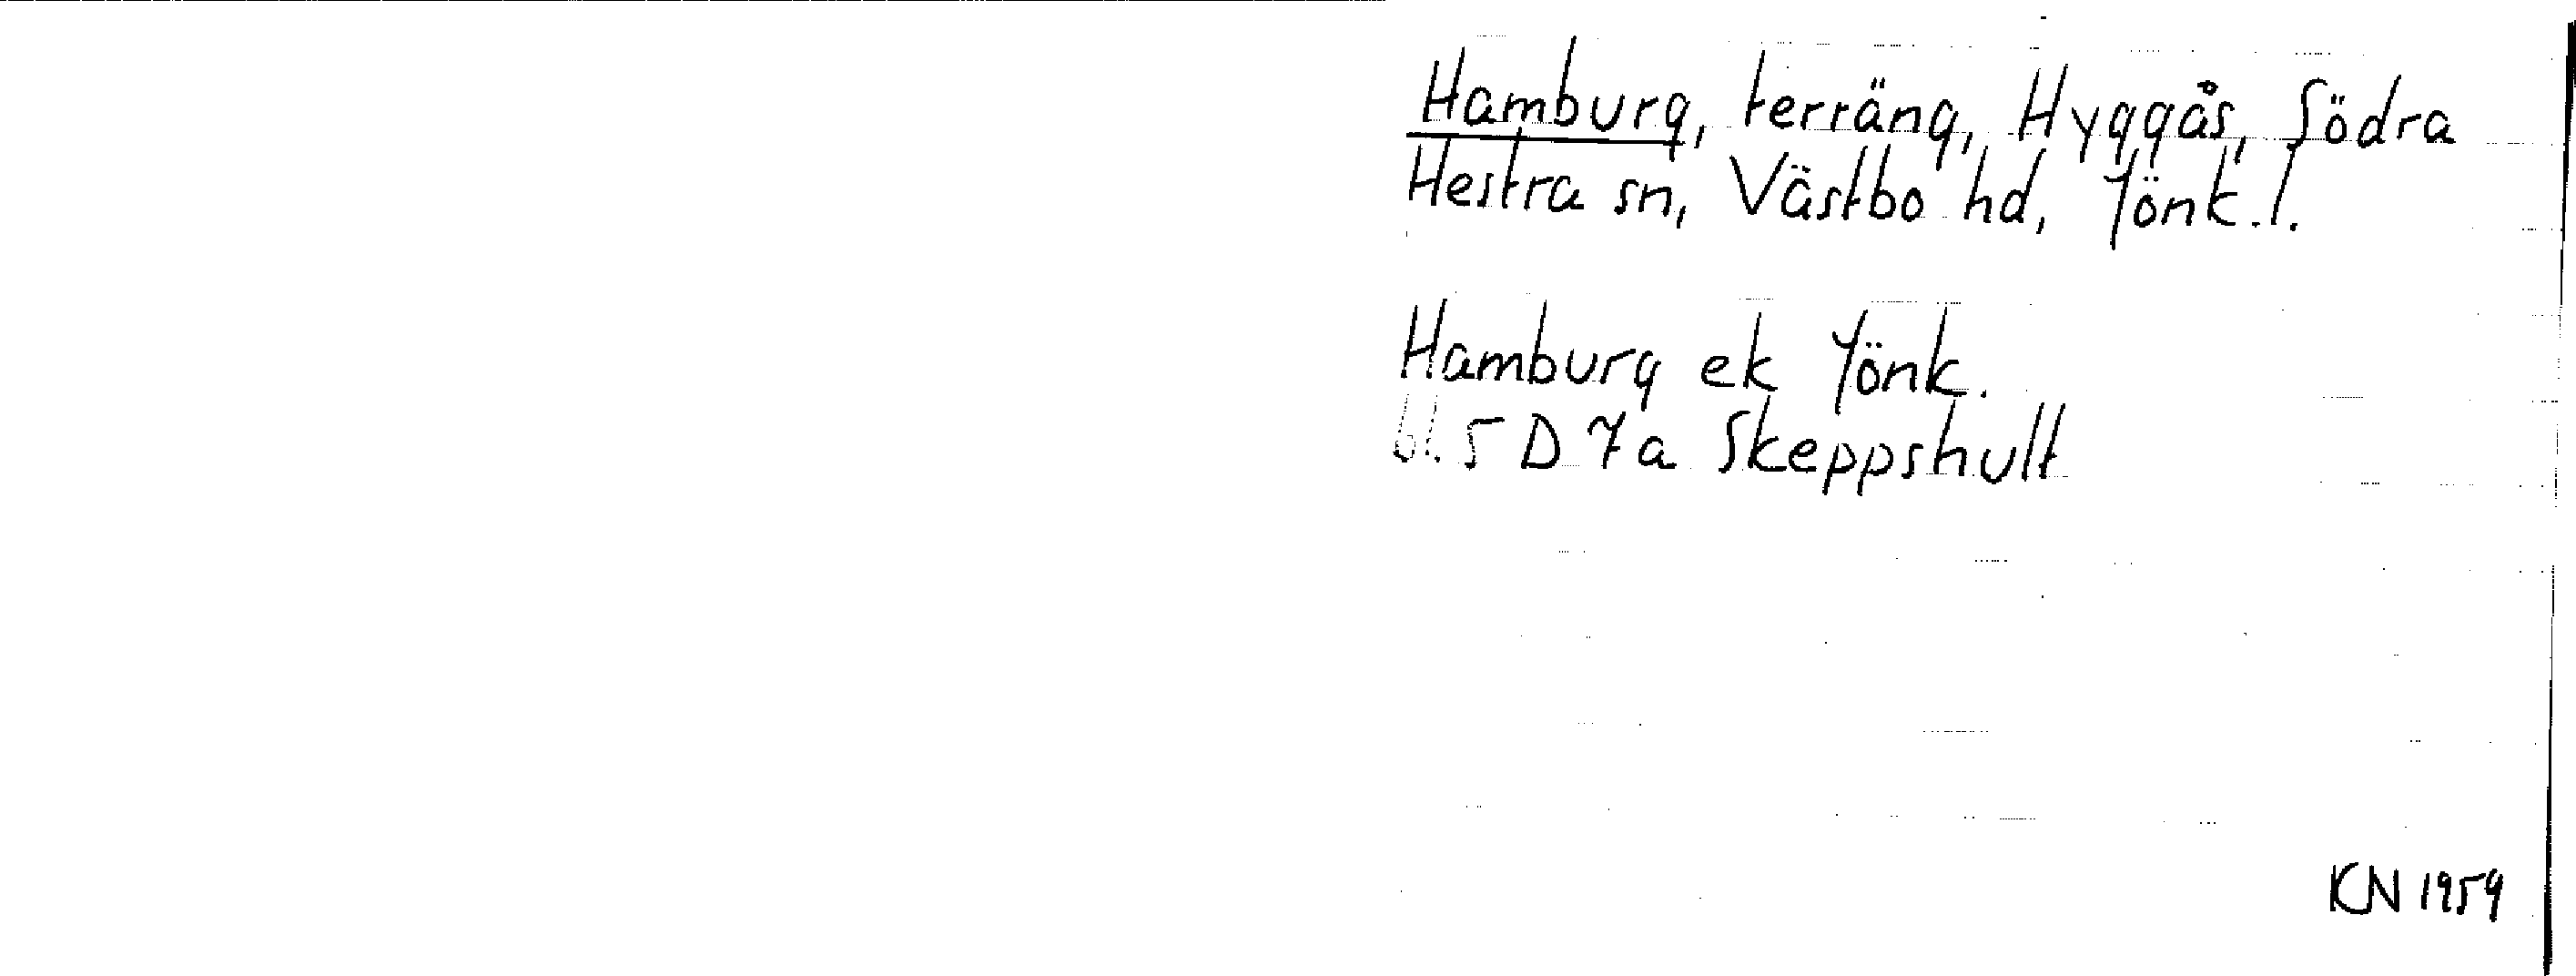 Hamburg, terräng, Hyggås, Södra
Hestra sn, Västbo hd, Jönk. l.
Hamburg ek Jönk.
bl. 5 D 7a Skeppshult
KN 1959